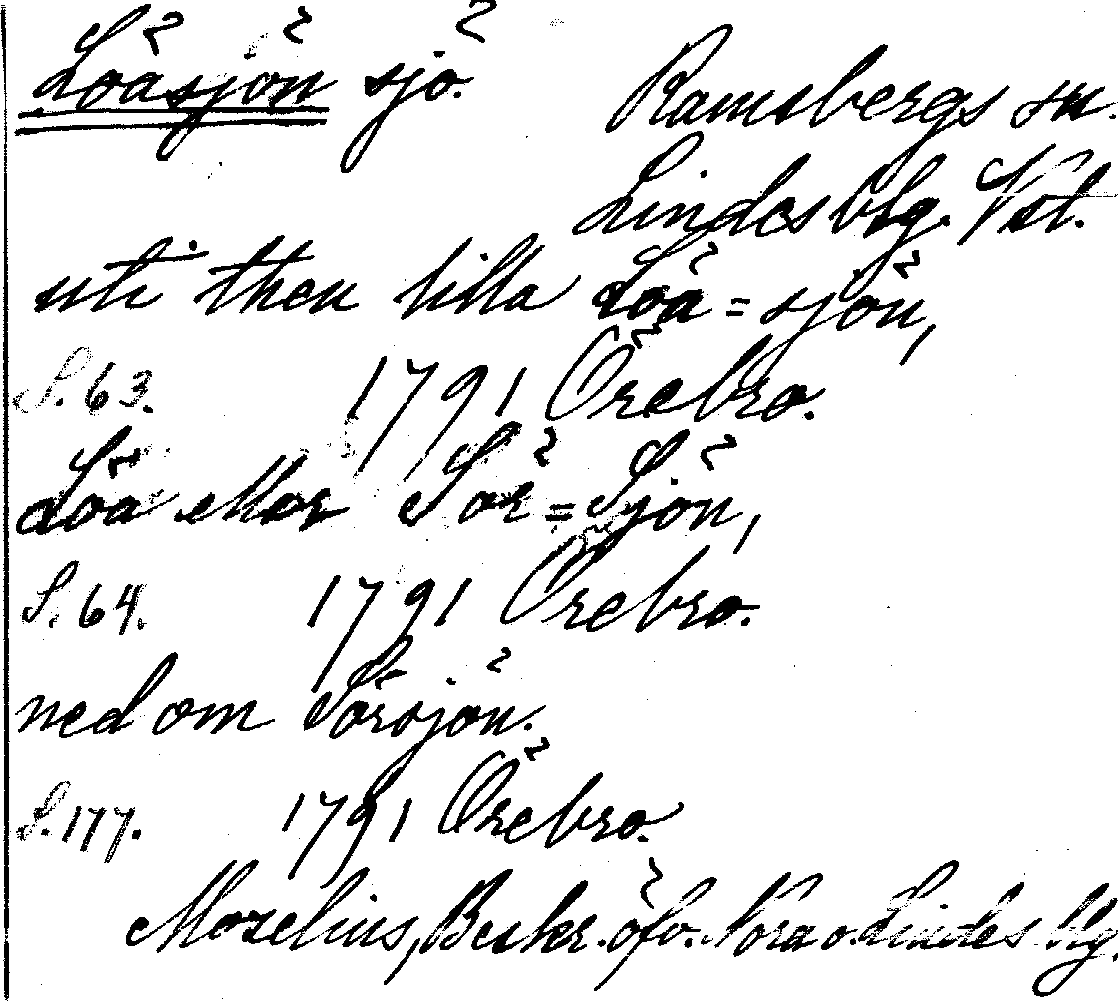 Löåsjön sjö.
Ramsbergs sn.
Lindes blg. Vstl.
uti then lilla Löa=sjön,
S. 63. 1791 Örebro.
Löa eller Sör=Sjön,
S. 64. 1791 Örebro.
ned om Sörsjön.
S. 177. 1791 Örebro.
Mozelius, Beskr. öfv. Nora o. Lindes blg.